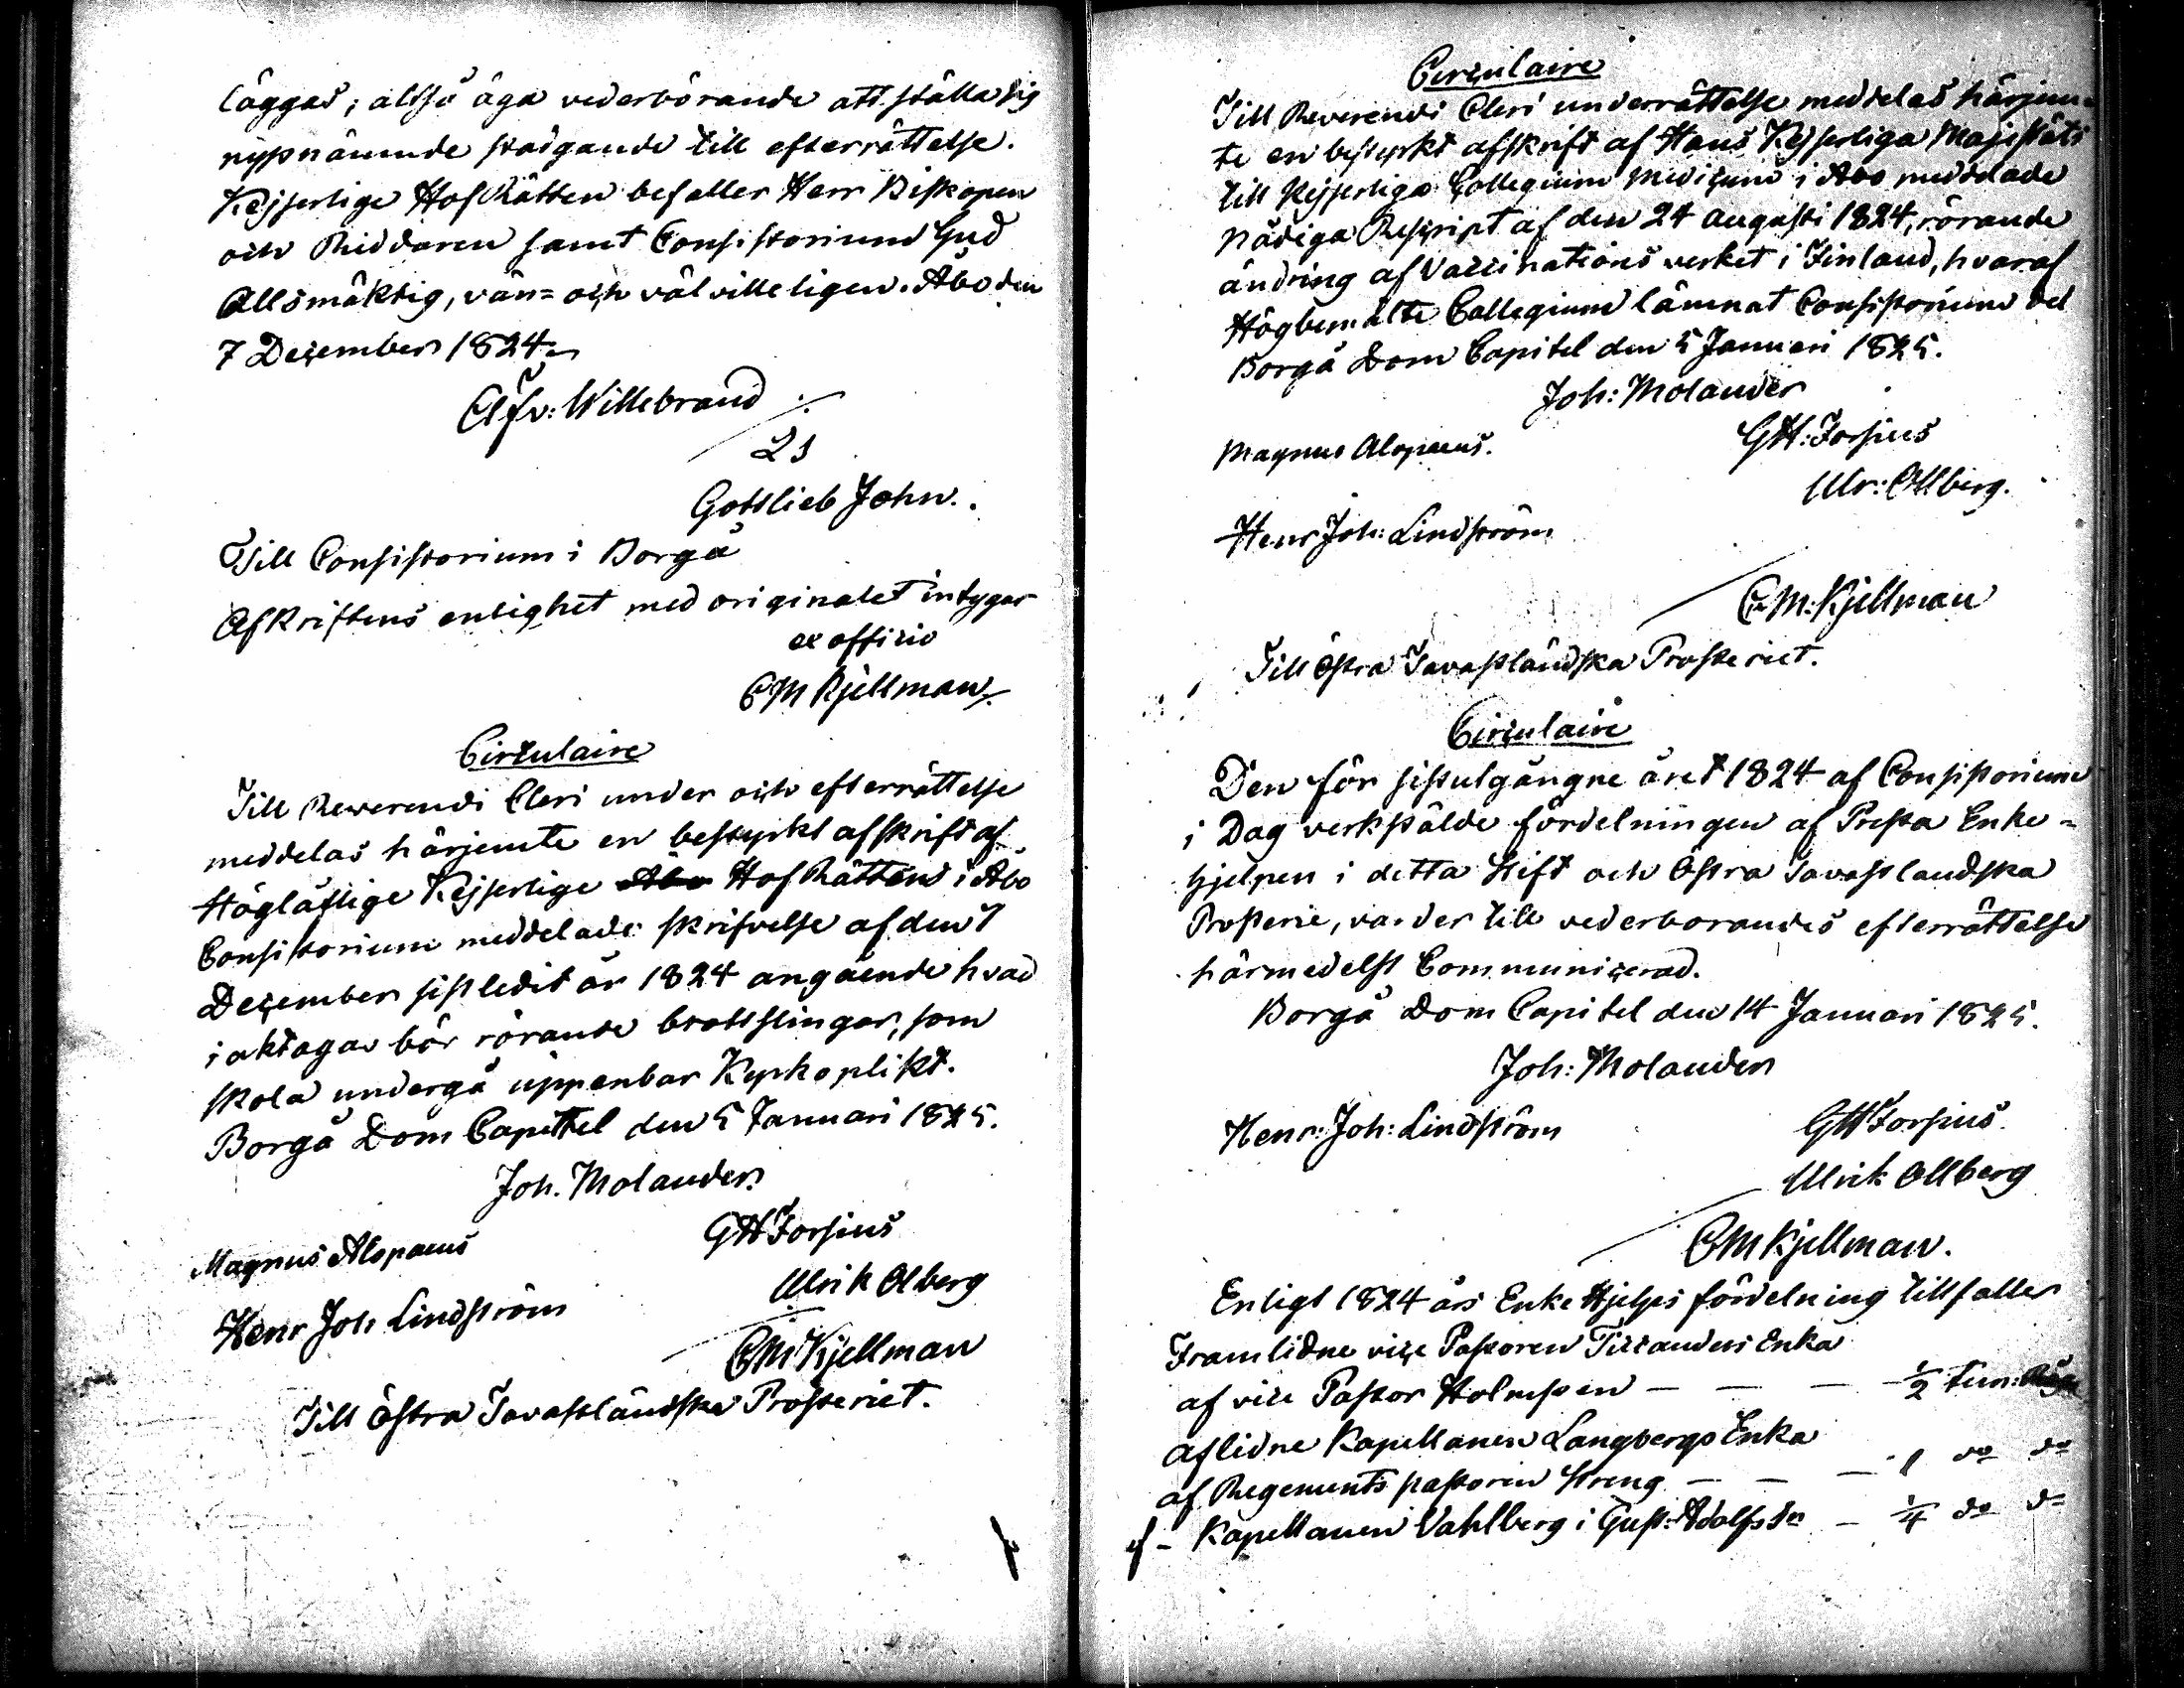 läggas; altså äga vederbörande att ställa sig
nyssnämnde stadgande till efterrättelse.
Kejserlige HofRätten befaller Herr Biskopen
och Riddaren samt Consistorium Gud
Allsmäktig, vän= och välvilleligen. Åbo den
7 December 1824.
Afv: Willebrand ./.
Gottlieb John.
Till Consistorium i Borgå
Afskriftens enlighet med originalet intygar
ex officio
CM Kjellman
Circulaire
Till Reverendi Cleri under och efterrättelse
meddelas härjemte en bestyrkt afskrift af
Högloflige Kejserlige Åbo HofRätten i Åbo
Consistorium meddelade skrifvelse af den 7
December sistledit år 1824 angående hvad
iakttagas bör rörande brottslingar, som
skola undergå uppenbar Kyrkoplikt.
Borgå Dom Capittel den 5 Januari 1825.
Joh. Molander
Magnus Alopaeus
GH Forsius
Ulrik Olberg
Henr Joh Lindström
CM Kjellman
Till Östra Tavastländska Prosteriet.
Circulaire
Till Reverendi Cleri underrättelse meddelas härjem-
te en bestyrkt afskrift af Hans Kejserliga Majestäts
till Kejserliga Collegium Medicum i Åbo meddelade
Nådiga Rescript af den 24 augusti 1824, rörande
ändring af Vaccinations verket i Finland, hvaraf
Högbemälte Collegium lämnat Consistorium del
Borgå Dom Capitel den 5 Januari 1825.
Joh: Molander
Magnus Alopaeus.
GH: Forsius
Ulr: Ollberg.
Henr Joh: Lindström
CM: Kjellman
Till Östra Tavastländska Prosteriet.
Circulaire
Den för sistutgångne året 1824 af Consistorium
i Dag verkstälde fördelningen af Presta Enke-
hjelpen i detta Stift och Östra Tavastlandska
Prosterie, varder till vederborandes efterrättelse
härmedelst Communicerad.
Borgå Dom Capitel den 14 Januari 1825.
Joh: Molander
Henr: Joh: Lindström
GH Forsius.
Ulrik Ollberg
CM Kjellman.
Enligt 1824 års Enke Hjelps fördelning tillfaller
Framlidne vice Pastoren Ticcanders Enka
af vice Pastor Holmsten — — — ½ tun: Råg
aflidne Kapellanen Langbergs Enka
af Regements pastoren Streng — — — 1 do do
af - Kapellanen Vahlberg i Gust: Adolfs — ¼ do do